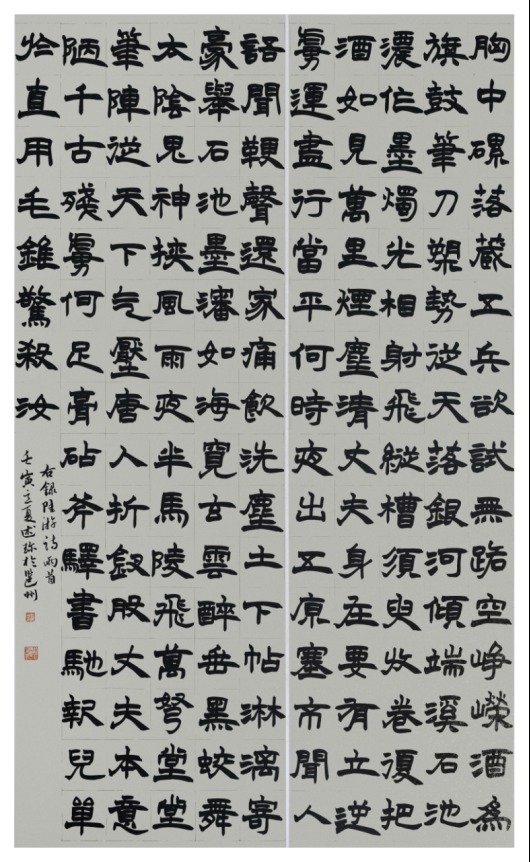 胸中磥落藏五兵欲試無路空崢嶸酒為
旗鼓筆刀槊勢從天落銀河傾端溪石池
濃作墨燭光相射飛縱橫須臾收卷復把
酒如見萬里煙塵清丈夫身在要有立逆
虜運盡行當平何時夜出五原塞不聞人
語聞鞭聲還家痛飲洗塵土下帖淋漓寄
豪舉石池墨瀋如海寬玄雲醉岳黑蛟舞
太陰鬼神挾風雨夜半馬陵飛萬弩堂堂
筆陣從天下氣壓唐人折釵股丈夫本意
陋千古殘虜何足膏砧斧驛書馳報兒單
于直用毛錐驚殺汝
右録陸游詩兩首
壬寅立夏述珎於邕州